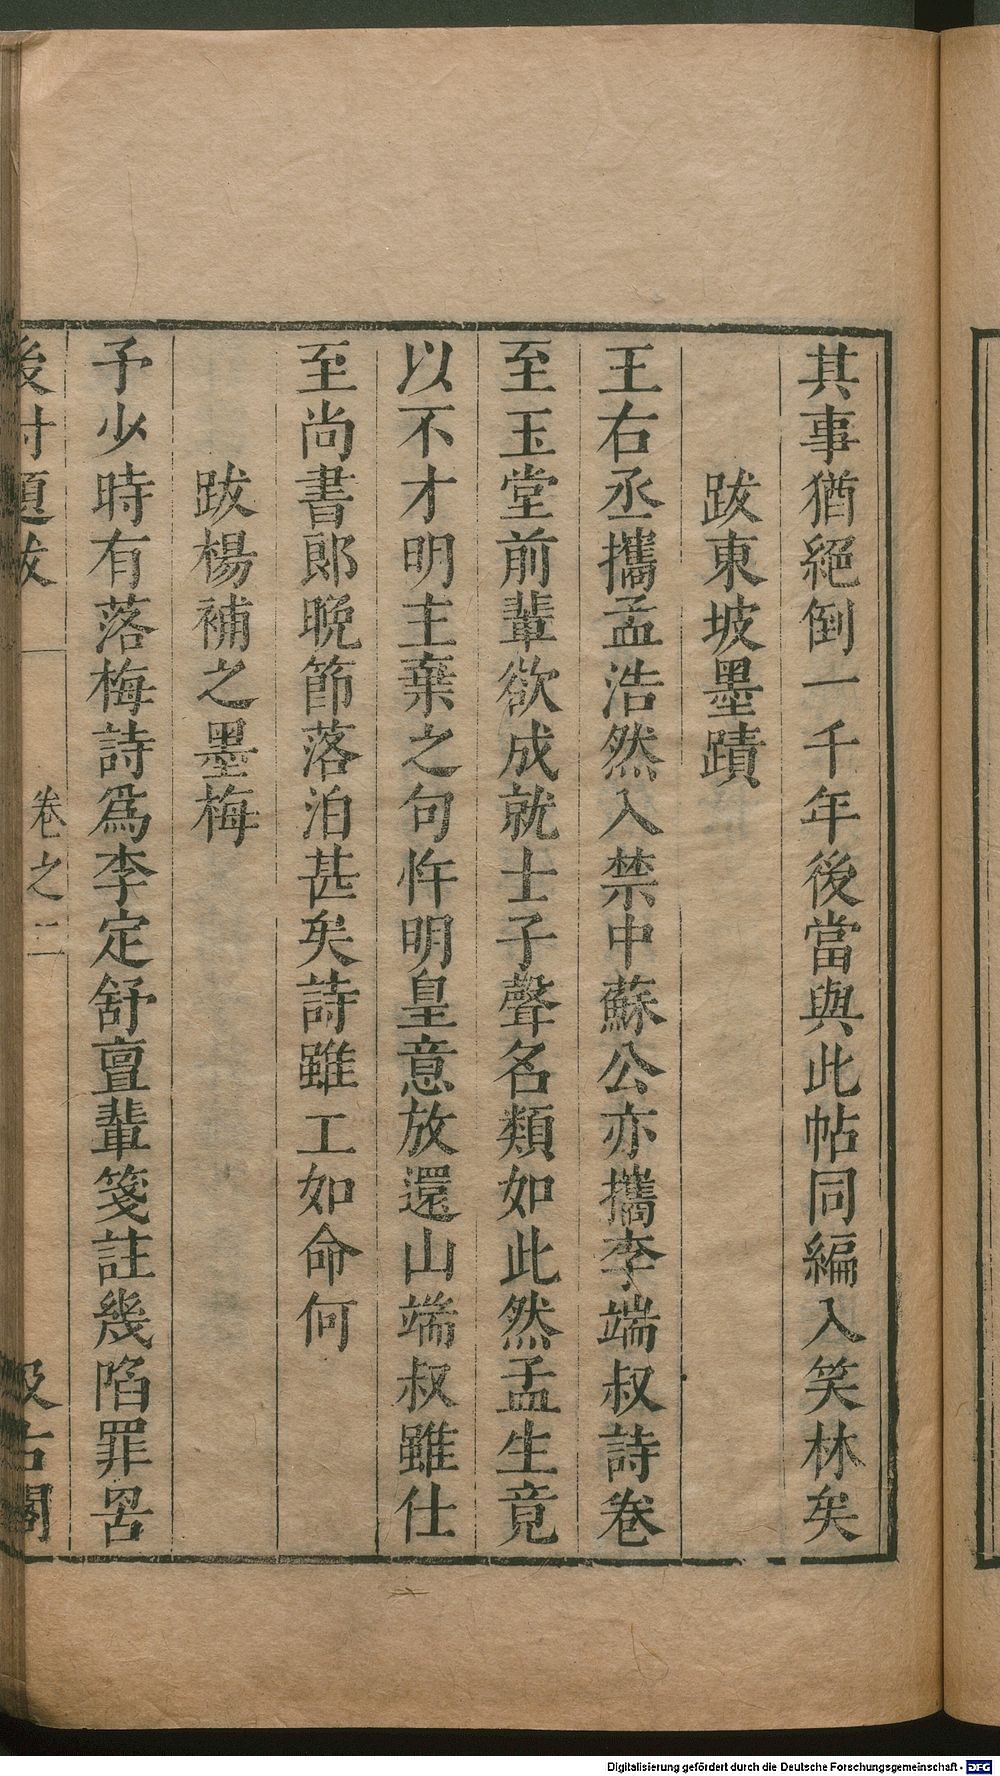 其事猶絕倒一千年後當與此帖同編入笑林矣
跋東坡墨蹟
王右丞攜孟浩然入禁中蘇公亦攜李端叔詩卷
至玉堂前輩欲成就士子聲名類如此然孟生竟
以不才明主棄之句忤明皇意放還山端叔雖仕
至尚書郎晚節落泊甚矣詩雖工如命何
跋楊補之墨梅
予少時有落梅詩爲李定舒亶輩箋註幾陷罪罟
後村題跋 卷之二 汲古閣
Digitalisierung gefördert durch die Deutsche Forschungsgemeinschaft - DFG